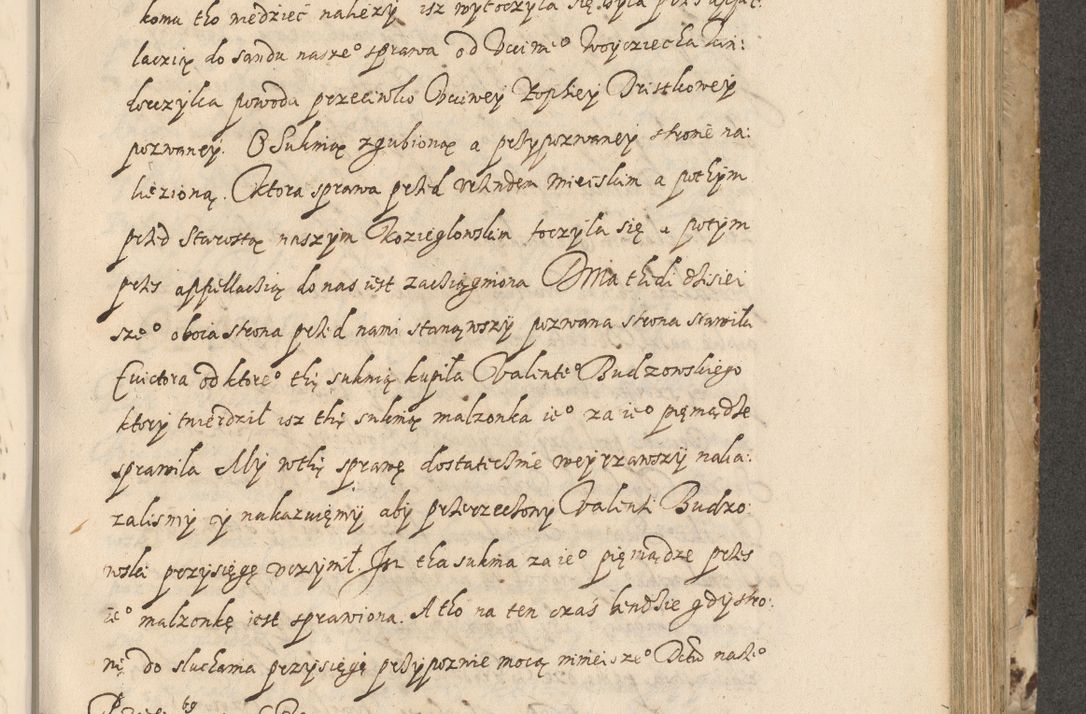 komu tho wiedzieć należy isz wytoczyła się była przes appel:
laczią do sandu nasze° sprawa od Vccime° Woyciecha Kin:
lorczyka powoda przeciwko Vcciwey Zophiey Dristkowey
pozwaney. O Suknią zgubioną a przypozwaney stronie na:
liezioną. Ktora sprawa przed vrzendem mieiskim a pothym
przed Starostą naszym Kozieglowskim toczyla się a potym
przes appellathią do nas iest zaciągniona Dnia thedi dzisiei
sze° oboia strona przed nami stanąwszy pozwana strona stawila
Evictora od ktore° thę suknią kupila Valente° Budzowskiego
ktory twierdził isz thę suknią malzonka ie° za ie° pięniądze
sprawila My w thę sprawę dostatecznie weyrzawszy naka:
zalismy y nakazuięmy aby przerzeczony Valenti Budzo:
wski przysięgę vczynił. Isz tha suknia za ie° pięniądze przes
ie° malzonkę iest sprawiona. A tho na ten czas bendzie gdy stro:
nę do sluchania przysięgi przypoznie mocą ninieisze° Dektu nasze°